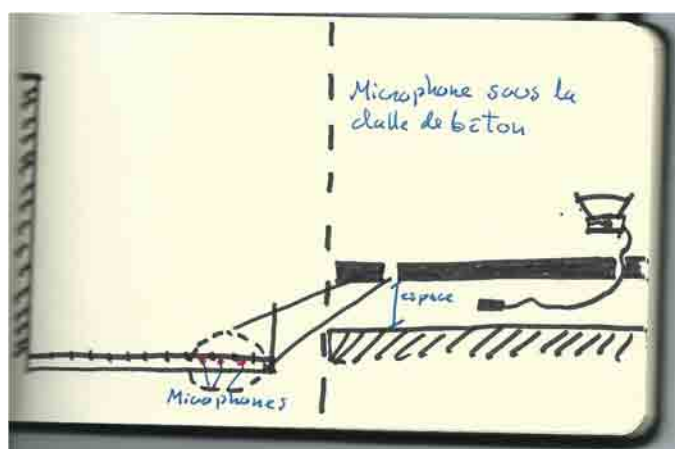 Microphone sous la
dalle de béton
espace
Microphones